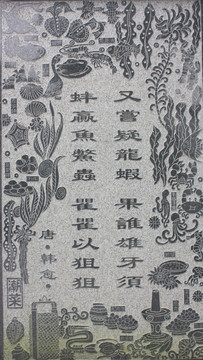 又嘗疑龍蝦 果誰雄牙須
蚌蠃魚鱉蟲 瞿瞿以狙狙
唐·韩愈·
潮菜